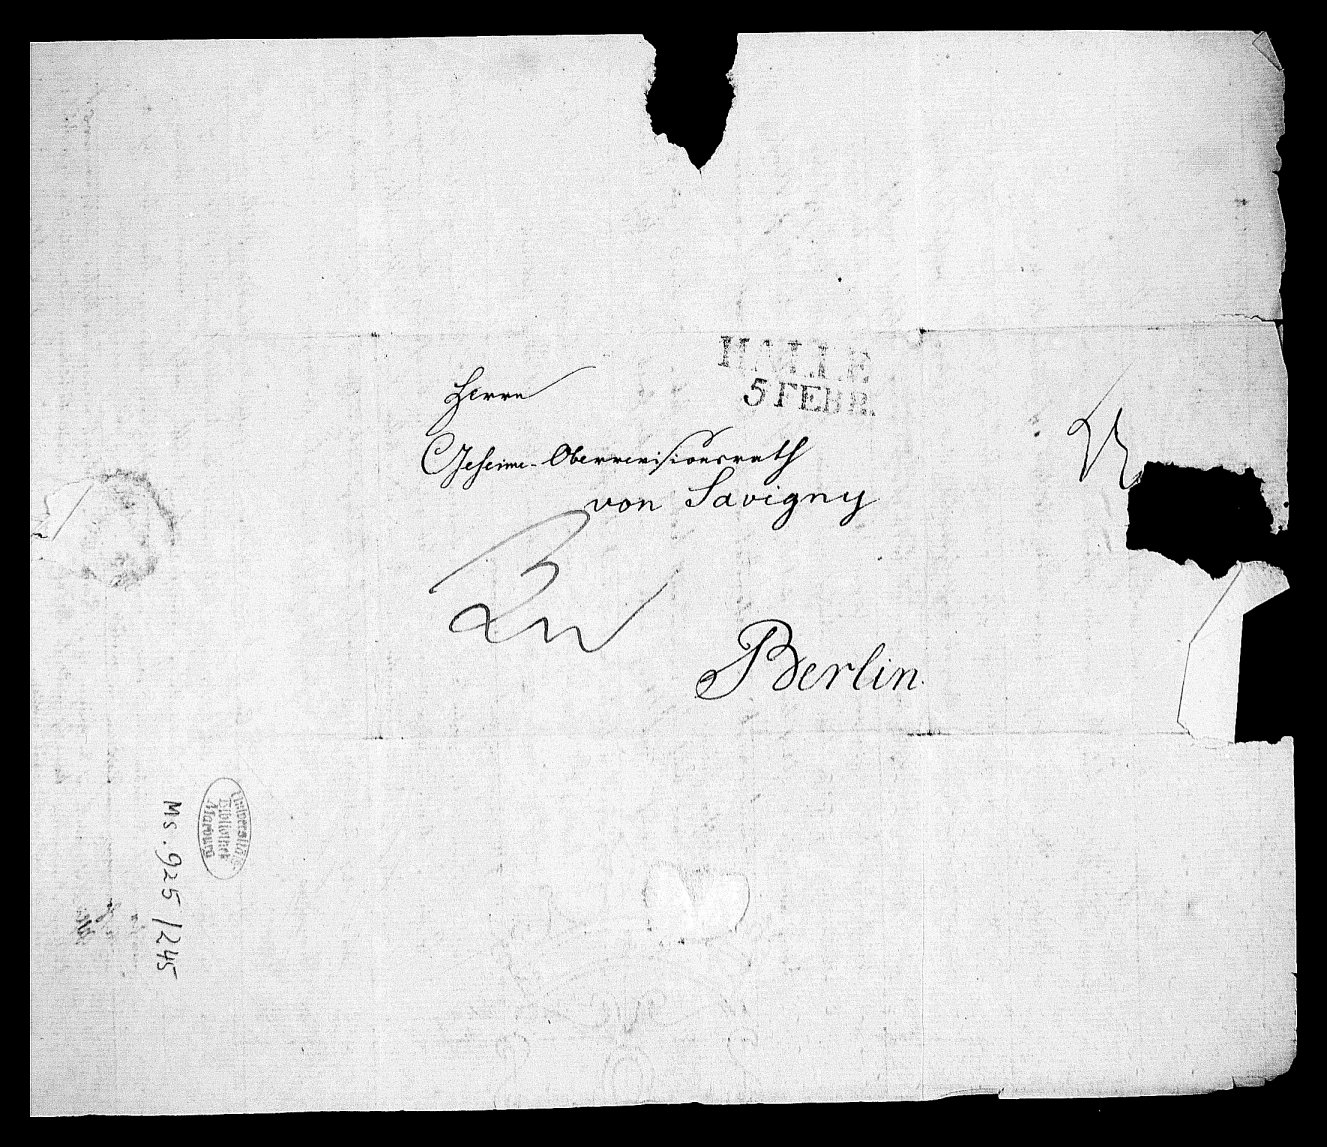 HALLE
5 FEBR.
Herrn
Geheime-Oberrevisionsrath
von Savigny
Berlin
Universitäts
Bibliothek
Marburg
Ms. 925/245